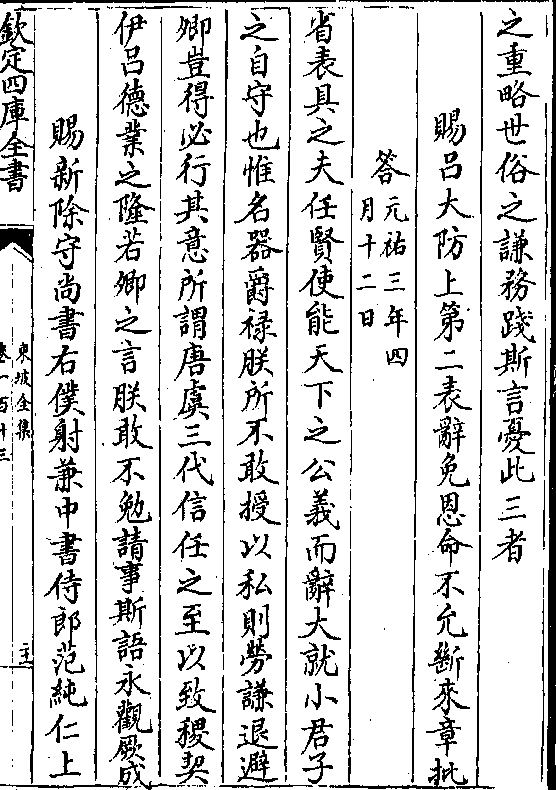 之重略世俗之謙務踐斯言憂此三者
賜呂大防上第二表辭免恩命不允斷來章批
答元祐三年四
月十二日
省表具之夫任賢使能天下之公義而辭大就小君子
之自守也惟名器爵祿朕所不敢授以私則勞謙退避
卿豈得必行其意所謂唐虞三代信任之至以致稷契
伊呂德業之隆若卿之言朕敢不勉請事斯語永觀厥成
賜新除守尚書右僕射兼中書侍郎范純仁上
欽定四庫全書
東坡全集
卷一百十三